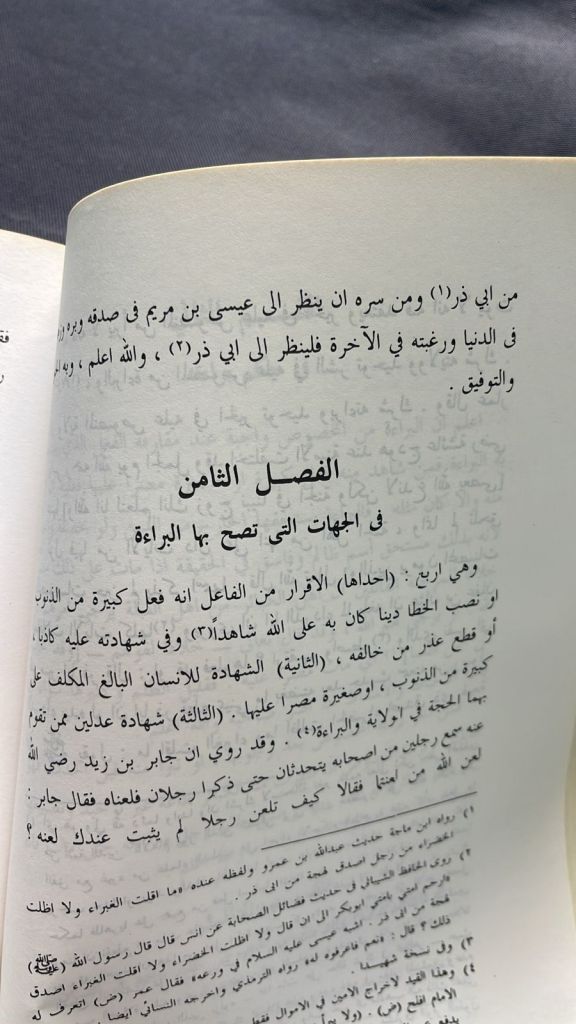 من ابي ذر(١) ومن سره ان ينظر الى عيسى بن مريم فى صدقه وبره
فى الدنيا ورغبته في الآخرة فلينظر الى ابي ذر(٢) ، والله اعلم ، وبه
والتوفيق .
الفصل الثامن
فى الجهات التى تصح بها البراءة
وهي اربع : (احداها) الاقرار من الفاعل انه فعل كبيرة من الذنوب
او نصب الخطا دينا كان به على الله شاهداً(٣) وفي شهادته عليه كاذبا ،
أو قطع عذر من خالفه ، (الثانية) الشهادة للانسان البالغ المكلف على
كبيرة من الذنوب ، اوصغيرة مصرا عليها . (الثالثة) شهادة عدلين ممن تقوم
بهما الحجة في الولاية والبراءة(٤) . وقد روي ان جابر بن زيد رضي الله
عنه سمع رجلين من اصحابه يتحدثان حتى ذكرا رجلان فلعناه فقال جابر :
لعن الله من لعنتما فقالا كيف تلعن رجلا لم يثبت عندك لعنه ؟
١) رواه ابن ماجة حديث عبدالله بن عمرو ولفظه عنده «ما اقلت الغبراء ولا اظلت
الخضراء من رجل اصدق لهجة من ابى ذر .
٢) روى الحافظ الشيبانى فى حديث فضائل الصحابة عن انس قال قال رسول الله (ﷺ)
«ارحم امتي بامتي ابوبكر الى ان قال ولا اظلت الخضراء ولا اقلت الغبراء اصدق
لهجة من ابى ذر . اشبه عيسى عليه السلام في ورعه» فقال عمر (ض) اتعرف له
ذلك ؟ قال : «نعم فاعرفوه له» رواه الترمذي واخرجه النسائي ايضا
٣) وفى نسخة شهيدا .
٤) وهذا القيد لاخراج الامين في الاموال فقط
الامام افلح (ض) . (ولا
يدفع